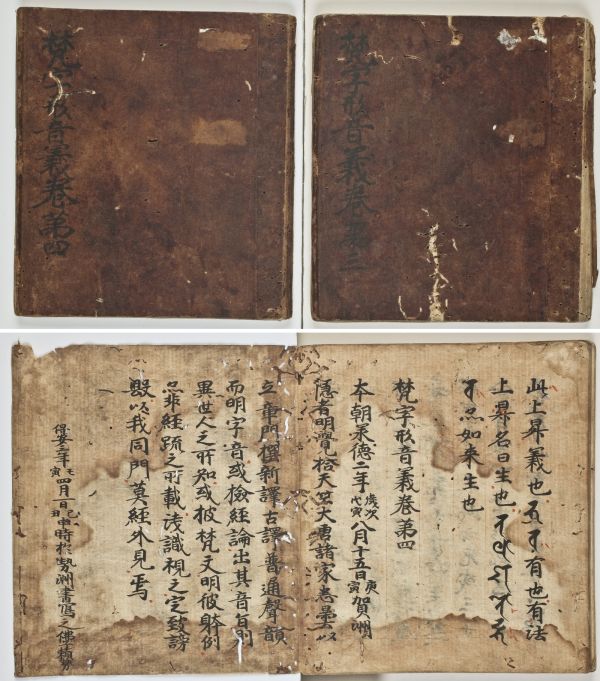 梵字形音義卷第四
梵字形音義卷第三
此上昇義也 有也有法
上昇名曰生也
如来生也
梵字形音義卷第四
本朝承徳二年歳次戊寅八月十五日庚寅賀洲
隠者明覺拾天竺大唐諸家悉曇以
立章門撰新譯古譯普通聲韻
而明字音或撿經論出其音旨則
異世人之所知或披梵文明彼躰例
亦非經疏之所載淺識視之定致謗
毀以我同門莫經外見焉
保安三年壬寅四月一日申時於勢洲書寫之佛